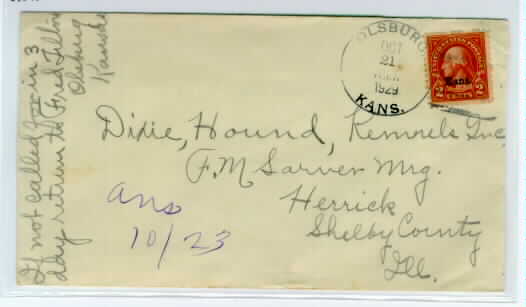 If not called for in 3
day return to Fred
Olsburg
Kansas
OLSBURG
OCT
21
1929
KANS.
UNITED STATES POSTAGE
Kans.
2 CENTS 2
Dixie, Hound, Kennels Inc,
F. M Sarver Mrg.
Herrick
Shelby County
Ill.
ans
10/23